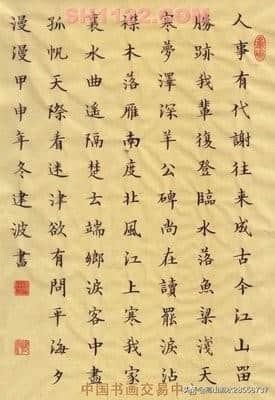 SH1122.COM
人事有代謝往來成古今江山留
勝跡我輩復登臨水落魚梁淺天
寒夢澤深羊公碑尚在讀罷淚沾
襟木落雁南度北風江上寒我家
襄水曲遙隔楚云端鄉淚客中盡
孤帆天際看迷津欲有問平海夕
漫漫甲申年冬建波書
中国书画交易中